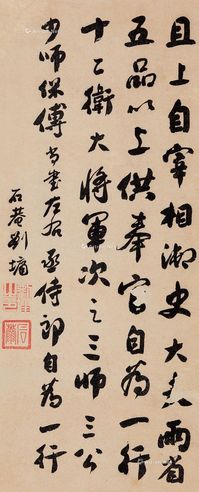 且上自宰相御史大夫兩省
五品以上供奉官自為一行
十二衛大將軍次之三師三公
少師保傅尚書左右丞侍郎自為一行
石菴劉墉